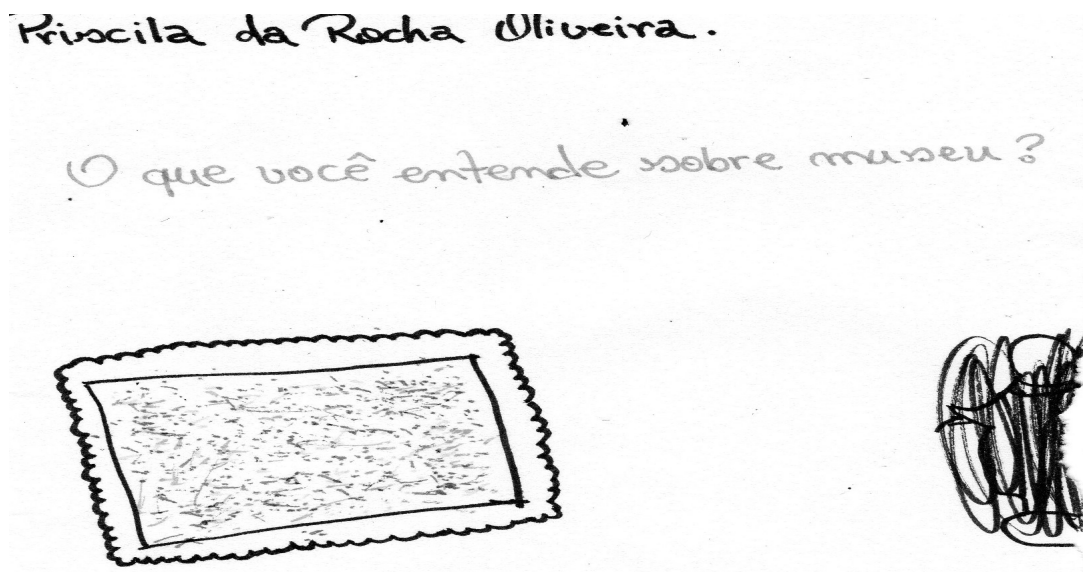 Priscila da Rocha Oliveira.
O que você entende sobre museu?